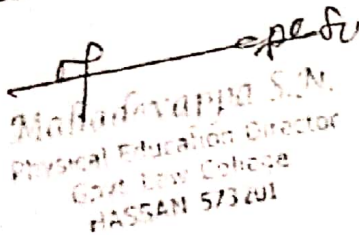 Mahadevappa S.N.
Physical Education Director
Govt Law College
HASSAN 573201